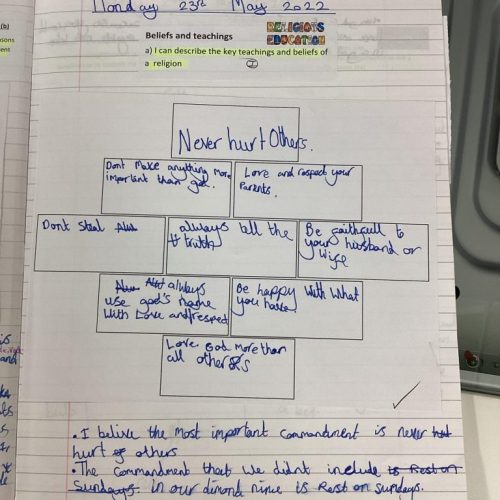 Monday 23rd May 2022
(b)
Beliefs and teachings
RELIGIOUS
EDUCATION
a) I can describe the key teachings and beliefs of
a religion
Never hurt Others.
Dont Make anything more
important than god.
Love and respect your
Parents.
Dont Steal
always tell the
truth
Be faithfull to
your husband or
Wife
always
use god's name
With Love and respect
Be happy With What
you have.
Love God more than
all others
• I belive the most important commandment is never
hurt others
• The Commandment that We didnt include is Rest on
Sundays. in our dimond nine is Rest on sundays.